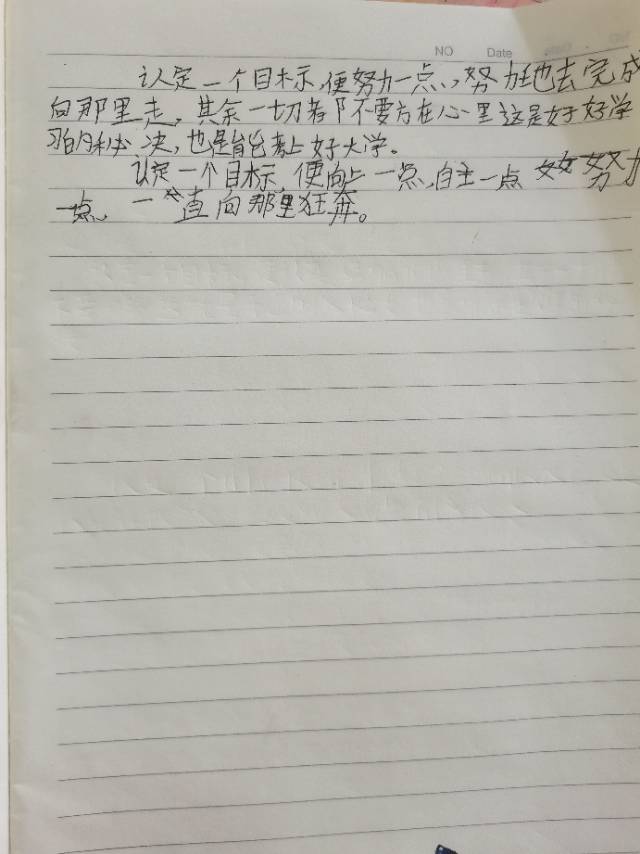 NO Date
认定一个目标,便努力一点,努力地去完成
向那里走,其余一切都不要方在心里这是好好学
习的秘决,也是能考上好大学。
认定一个目标,便向上一点,自主一点 努力
一点,一直向那里狂奔。